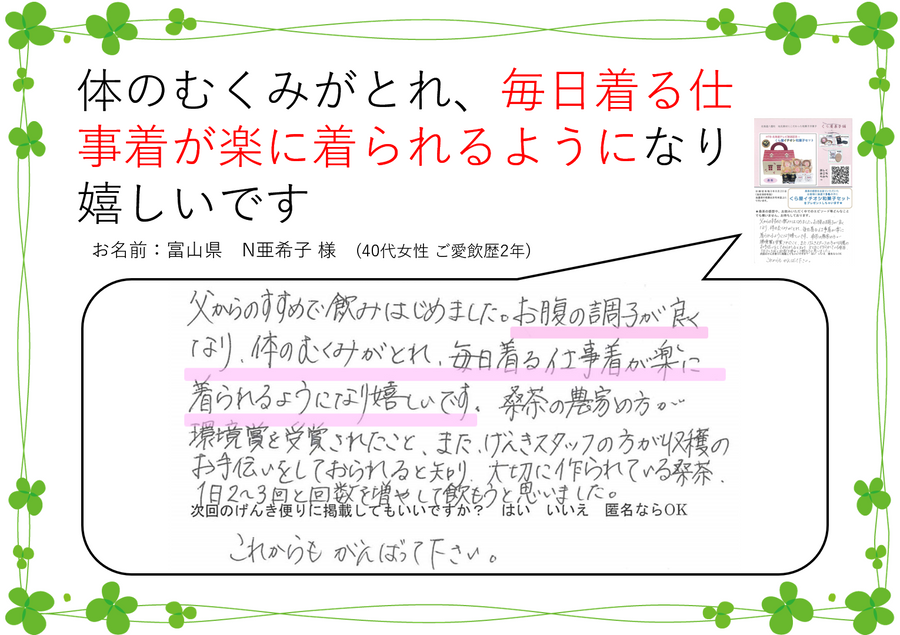 体のむくみがとれ、毎日着る仕
事着が楽に着られるようになり
嬉しいです
お名前：富山県　N亜希子 様　(40代女性 ご愛飲歴2年)
父からのすすめで飲みはじめました。お腹の調子が良く
なり、体のむくみがとれ、毎日着る仕事着が楽に
着られるようになり嬉しいです。桑茶の農家の方が
環境賞を受賞されたこと、また、げんきスタッフの方が収穫の
お手伝いをしておられると知り、大切に作られている桑茶、
1日2〜3回と回数を増やして飲もうと思いました。
次回のげんき便りに掲載してもいいですか？　はい　いいえ　匿名ならOK
これからも がんばって下さい。
くら屋イチオシ和菓子セット